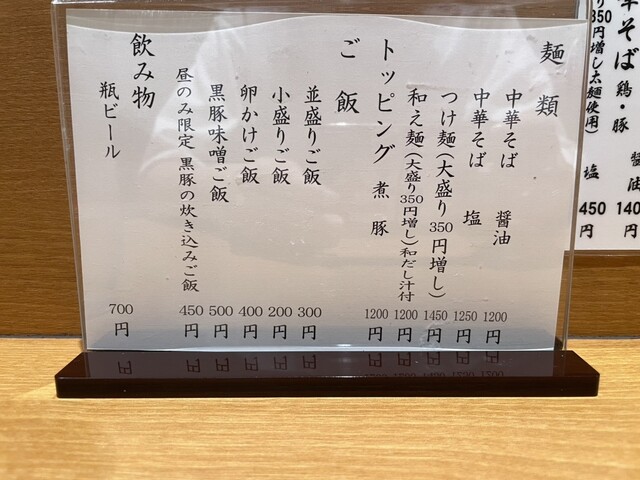 麺類
中華そば 醤油 1200円
中華そば 塩 1250円
つけ麺(大盛り350円増し) 1450円
和え麺(大盛り350円増し)和だし汁付 1200円
トッピング 煮豚 1200円
ご飯
並盛りご飯 300円
小盛りご飯 200円
卵かけご飯 400円
黒豚味噌ご飯 500円
昼のみ限定 黒豚の炊き込みご飯 450円
飲み物
瓶ビール 700円
そば 鶏・豚 醤油 140 円
350円増し太麺使用) 塩 450円